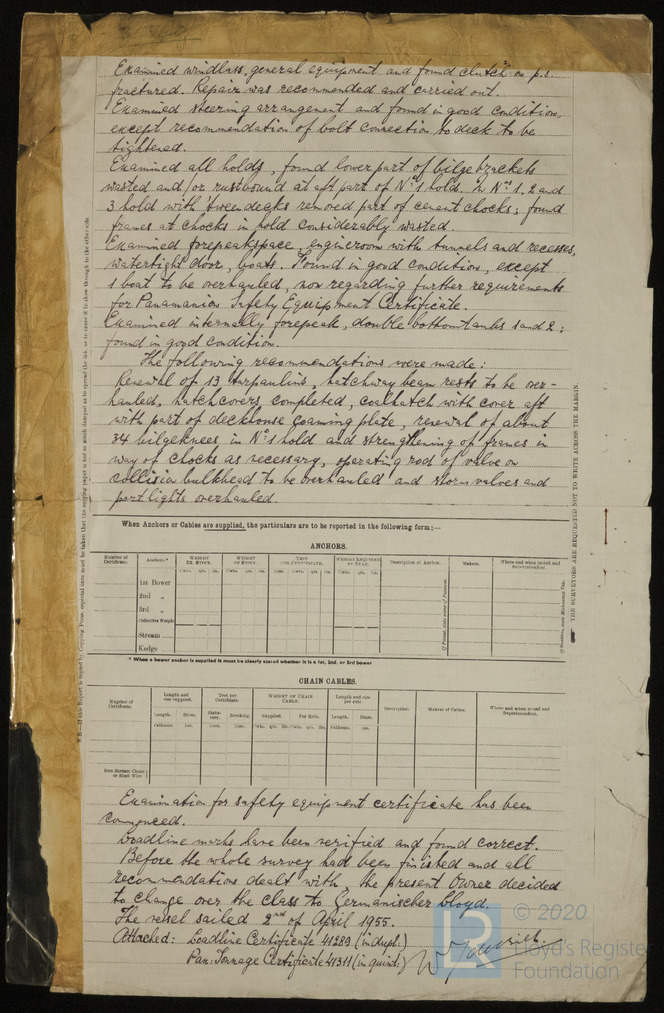 Examined windlass, general equipment and found clutch on p.s.
fractured. Repair was recommended and carried out.
Examined steering arrangement and found in good condition,
except recommendation of bolt connection to deck to be
tightened.
Examined all holds, found lower part of bilgebrackets
wasted and/or rustbound at aft part of No 1 hold. In Nos 1, 2 and
3 hold with 'tweendecks removed part of cement chocks; found
frames at chocks in hold considerably wasted.
Examined forepeakspace, engineroom with tunnels and recesses,
watertight door, boats. Found in good condition, except
1 boat to be overhauled, now regarding further requirements
for Panamanian Safety Equipment Certificate.
Examined internally forepeak, double bottomtanks 1 and 2;
found in good condition.
The following recommendations were made:
Renewal of 13 tarpaulins, hatchway beam rests to be over-
hauled, hatchcovers completed, coalhatch with cover aft
with part of deckhouse coaming plate, renewal of about
34 bilgeknees in No 1 hold and strengthening of frames in
way of chocks as necessary, operating rod of valve on
collision bulkhead to be overhauled and storm valves and
portlights overhauled.
When Anchors or Cables are supplied, the particulars are to be reported in the following form:—
ANCHORS.
Number of Certificate.
Anchors.*
WEIGHT EX. STOCK.
WEIGHT OF STOCK.
TEST PER CERTIFICATE.
WEIGHT REQUIRED BY RULE.
Description of Anchor.
Makers.
Where and when tested and Superintendent.
Cwts. qrs. lbs.
1st Bower
2nd „
3rd „
Collective Weight
Stream
Kedge
* When a bower anchor is supplied it must be clearly stated whether it is a 1st, 2nd, or 3rd bower
CHAIN CABLES.
Number of Certificate.
Length and size supplied.
Test per Certificate.
WEIGHT OF CHAIN CABLE.
Length and size per rule.
Description.
Makers of Cables.
Where and when tested and Superintendent.
Length. Diam. Statutory. Breaking. Supplied. Per Rule. Length. Diam.
Fathoms. Ins. Tons. Tons. Cwts. qrs. lbs. Cwts. qrs. lbs. Fathoms. Ins.
Iron Stream Chain or Steel Wire
Examination for safety equipment certificate has been
commenced.
Loadline marks have been verified and found correct.
Before the whole survey had been finished and all
recommendations dealt with, the present Owner decided
to change over the class to Germanischer Lloyd.
The vessel sailed 2nd of April 1955.
Attached: Loadline Certificate 41289 (in dupl.)
Pan: Tonnage Certificate 41311 (in quint.)
THE SURVEYORS ARE REQUESTED NOT TO WRITE ACROSS THE MARGIN.
© 2020
Lloyd's Register
Foundation